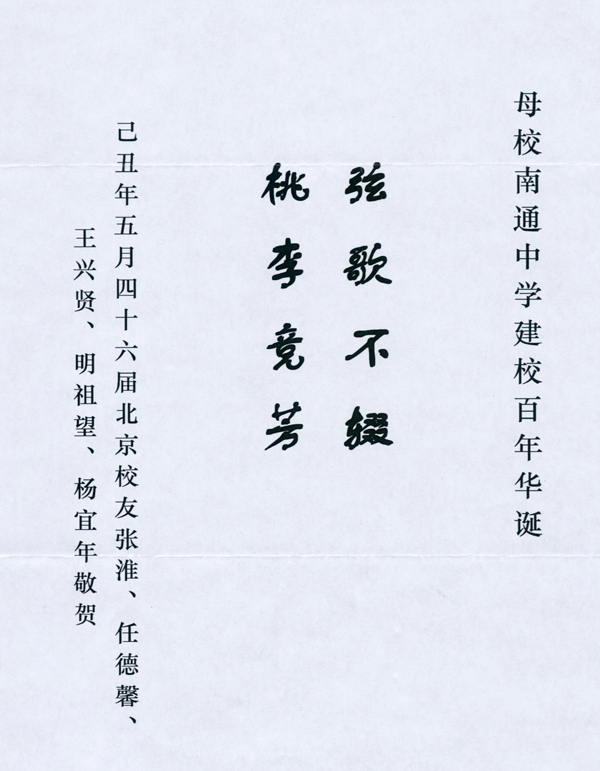 母校南通中学建校百年华诞
弦歌不辍
桃李竞芳
己丑年五月四十六届北京校友张淮、任德馨、
王兴贤、明祖望、杨宜年敬贺